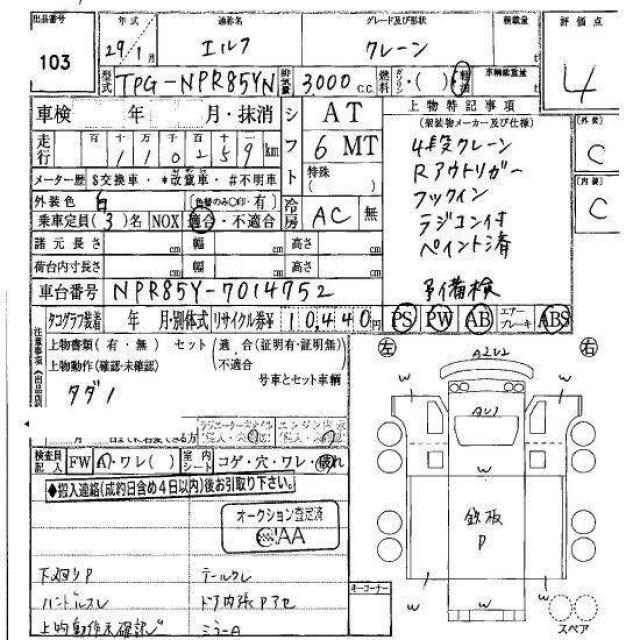 出品番号 年式 通称名 グレード及び形状 積載量 評価点
103 29/1月 エルフ クレーン t 4
型式 TPG-NPR85YN 排気量 3000 C.C. 燃料 ガソリン・( )軽油 車輌総重量 t
車検 年 月・抹消 シフト AT 上物特記事項 [外装]
(架装物メーカー及び仕様) C
走行 百 十 万 千 百 十 一 6 MT 4段クレーン
110259 km Rアウトリガー
メーター歴 $交換車・*改ざん車・#不明車 特殊( ) フックイン [内装]
外装色 白 (色替のみ○印・有) 冷房 AC 無 ラジコン付 C
乗車定員(3)名 NOX 適合・不適合 ペイント済
諸元長さ cm 幅 cm 高さ cm
荷台内寸長さ cm 幅 cm 高さ cm
車台番号 NPR85Y-7014752 予備検
タコグラフ装着 年 月・別体式 リサイクル券¥ 10,440円 PS PW AB エアーブレーキ ABS
注意事項(出品店
上物書類(有・無) セット(適合(証明有・証明無)
上物動作(確認・未確認) ・不適合
号車とセット車輌
タダノ
左 右
A2U2
AU1
W W
W
鉄板
P
W W
スペア
検査員記入 FW A・ワレ( ) 室内シート コゲ・穴・ワレ・破れ
◆搬入連絡(成約日含め4日以内)後お引取り下さい。
オークション査定済
AA
下廻りP テールクレ
ハンドルスレ ドア内張Pアセ
上物動作未確認 ミラーA
キーコーナー